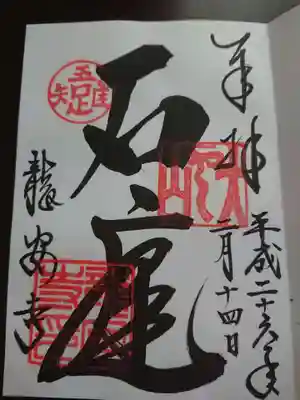 奉拝
平成二十六年
二月十四日
石庭
龍安寺
吾唯足知